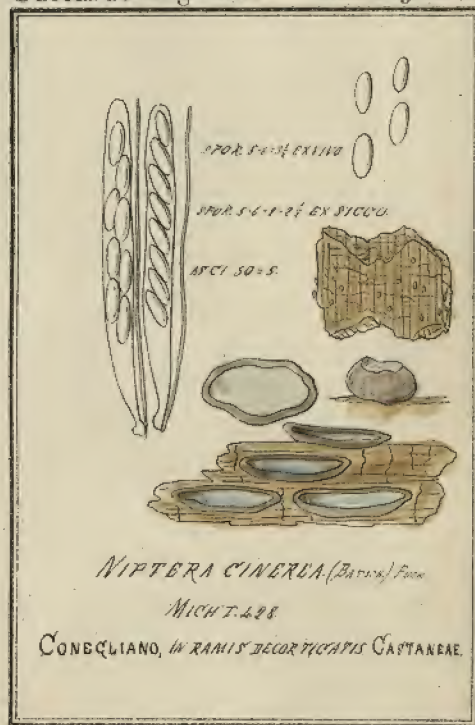 SPOR. 5-6=3½ EX VIVO
EX SICCO.
ASCI 50=5.
NIPTERA CINEREA. (BATSCH) FUCK
MICH T. 428.
CONEGLIANO, IN RAMIS DECORTICATIS CASTANEAE.